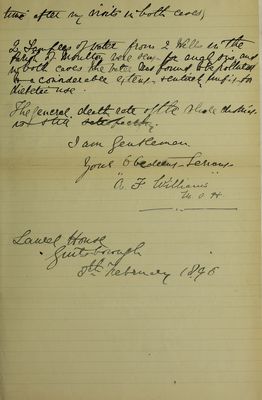 time after my visits in both cases,
2 Samples of water from 2 Wells in the
parish of Moulton were sent for analysis, and
in both cases the water was found to be polluted
to a considerable extent rendering unfit for
dietetic use.
The general death rate of the whole district
was still satisfactory.
I am Gentlemen
Your Obedient Servant
"A. F. Williams"
M O H
Laurel House
Guisborough
8th February 1896